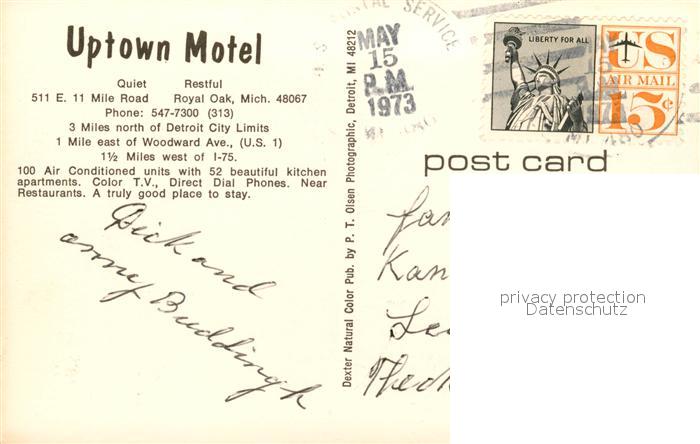 Uptown Motel
Quiet Restful
511 E. 11 Mile Road Royal Oak, Mich. 48067
Phone: 547-7300 (313)
3 Miles north of Detroit City Limits
1 Mile east of Woodward Ave., (U.S. 1)
1½ Miles west of I-75.
100 Air Conditioned units with 52 beautiful kitchen
apartments. Color T.V., Direct Dial Phones. Near
Restaurants. A truly good place to stay.
Dick and
Buddingh
Dexter Natural Color Pub. by P. T. Olsen Photographic, Detroit, MI 48212
POSTAL SERVICE
MAY
15
P.M.
1973
LIBERTY FOR ALL
US
AIR MAIL
15¢
post card
Kan
privacy protection
Datenschutz